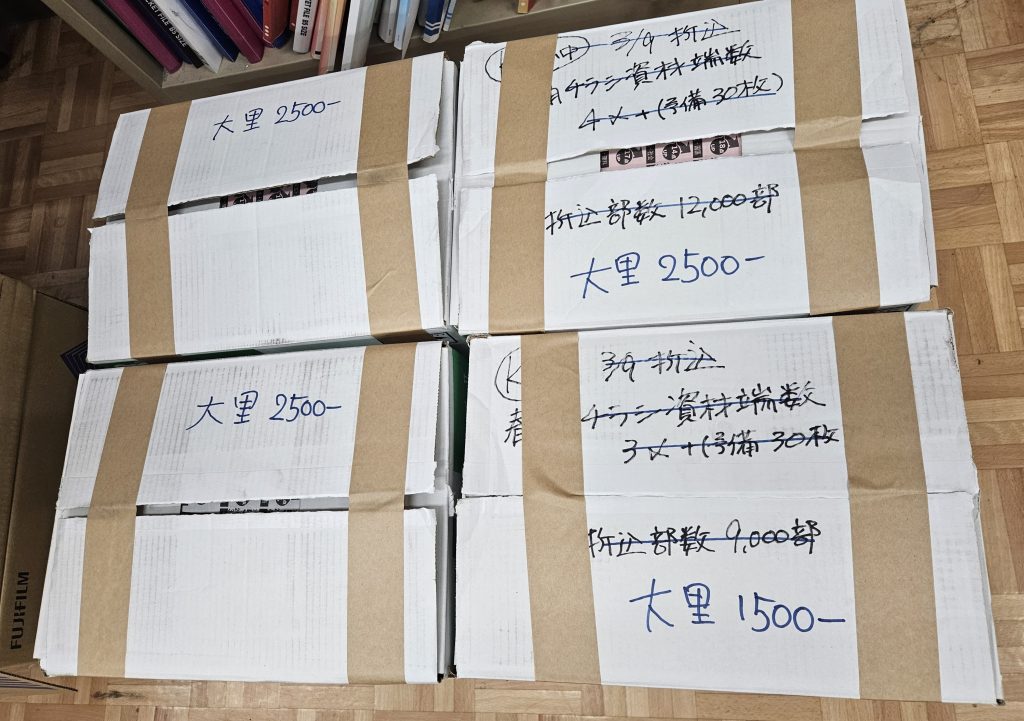 KET FILE B5 SIZE
大里 2500-
中 3/9 折込
チラシ資材端数
4〆+(予備30枚)
17k
14k
18k
折込部数 12,000部
大里 2500-
大里 2500-
K
春
3/9 折込
チラシ資材端数
3〆+(予備30枚
折込部数 9,000部
大里 1500-
FUJIFILM